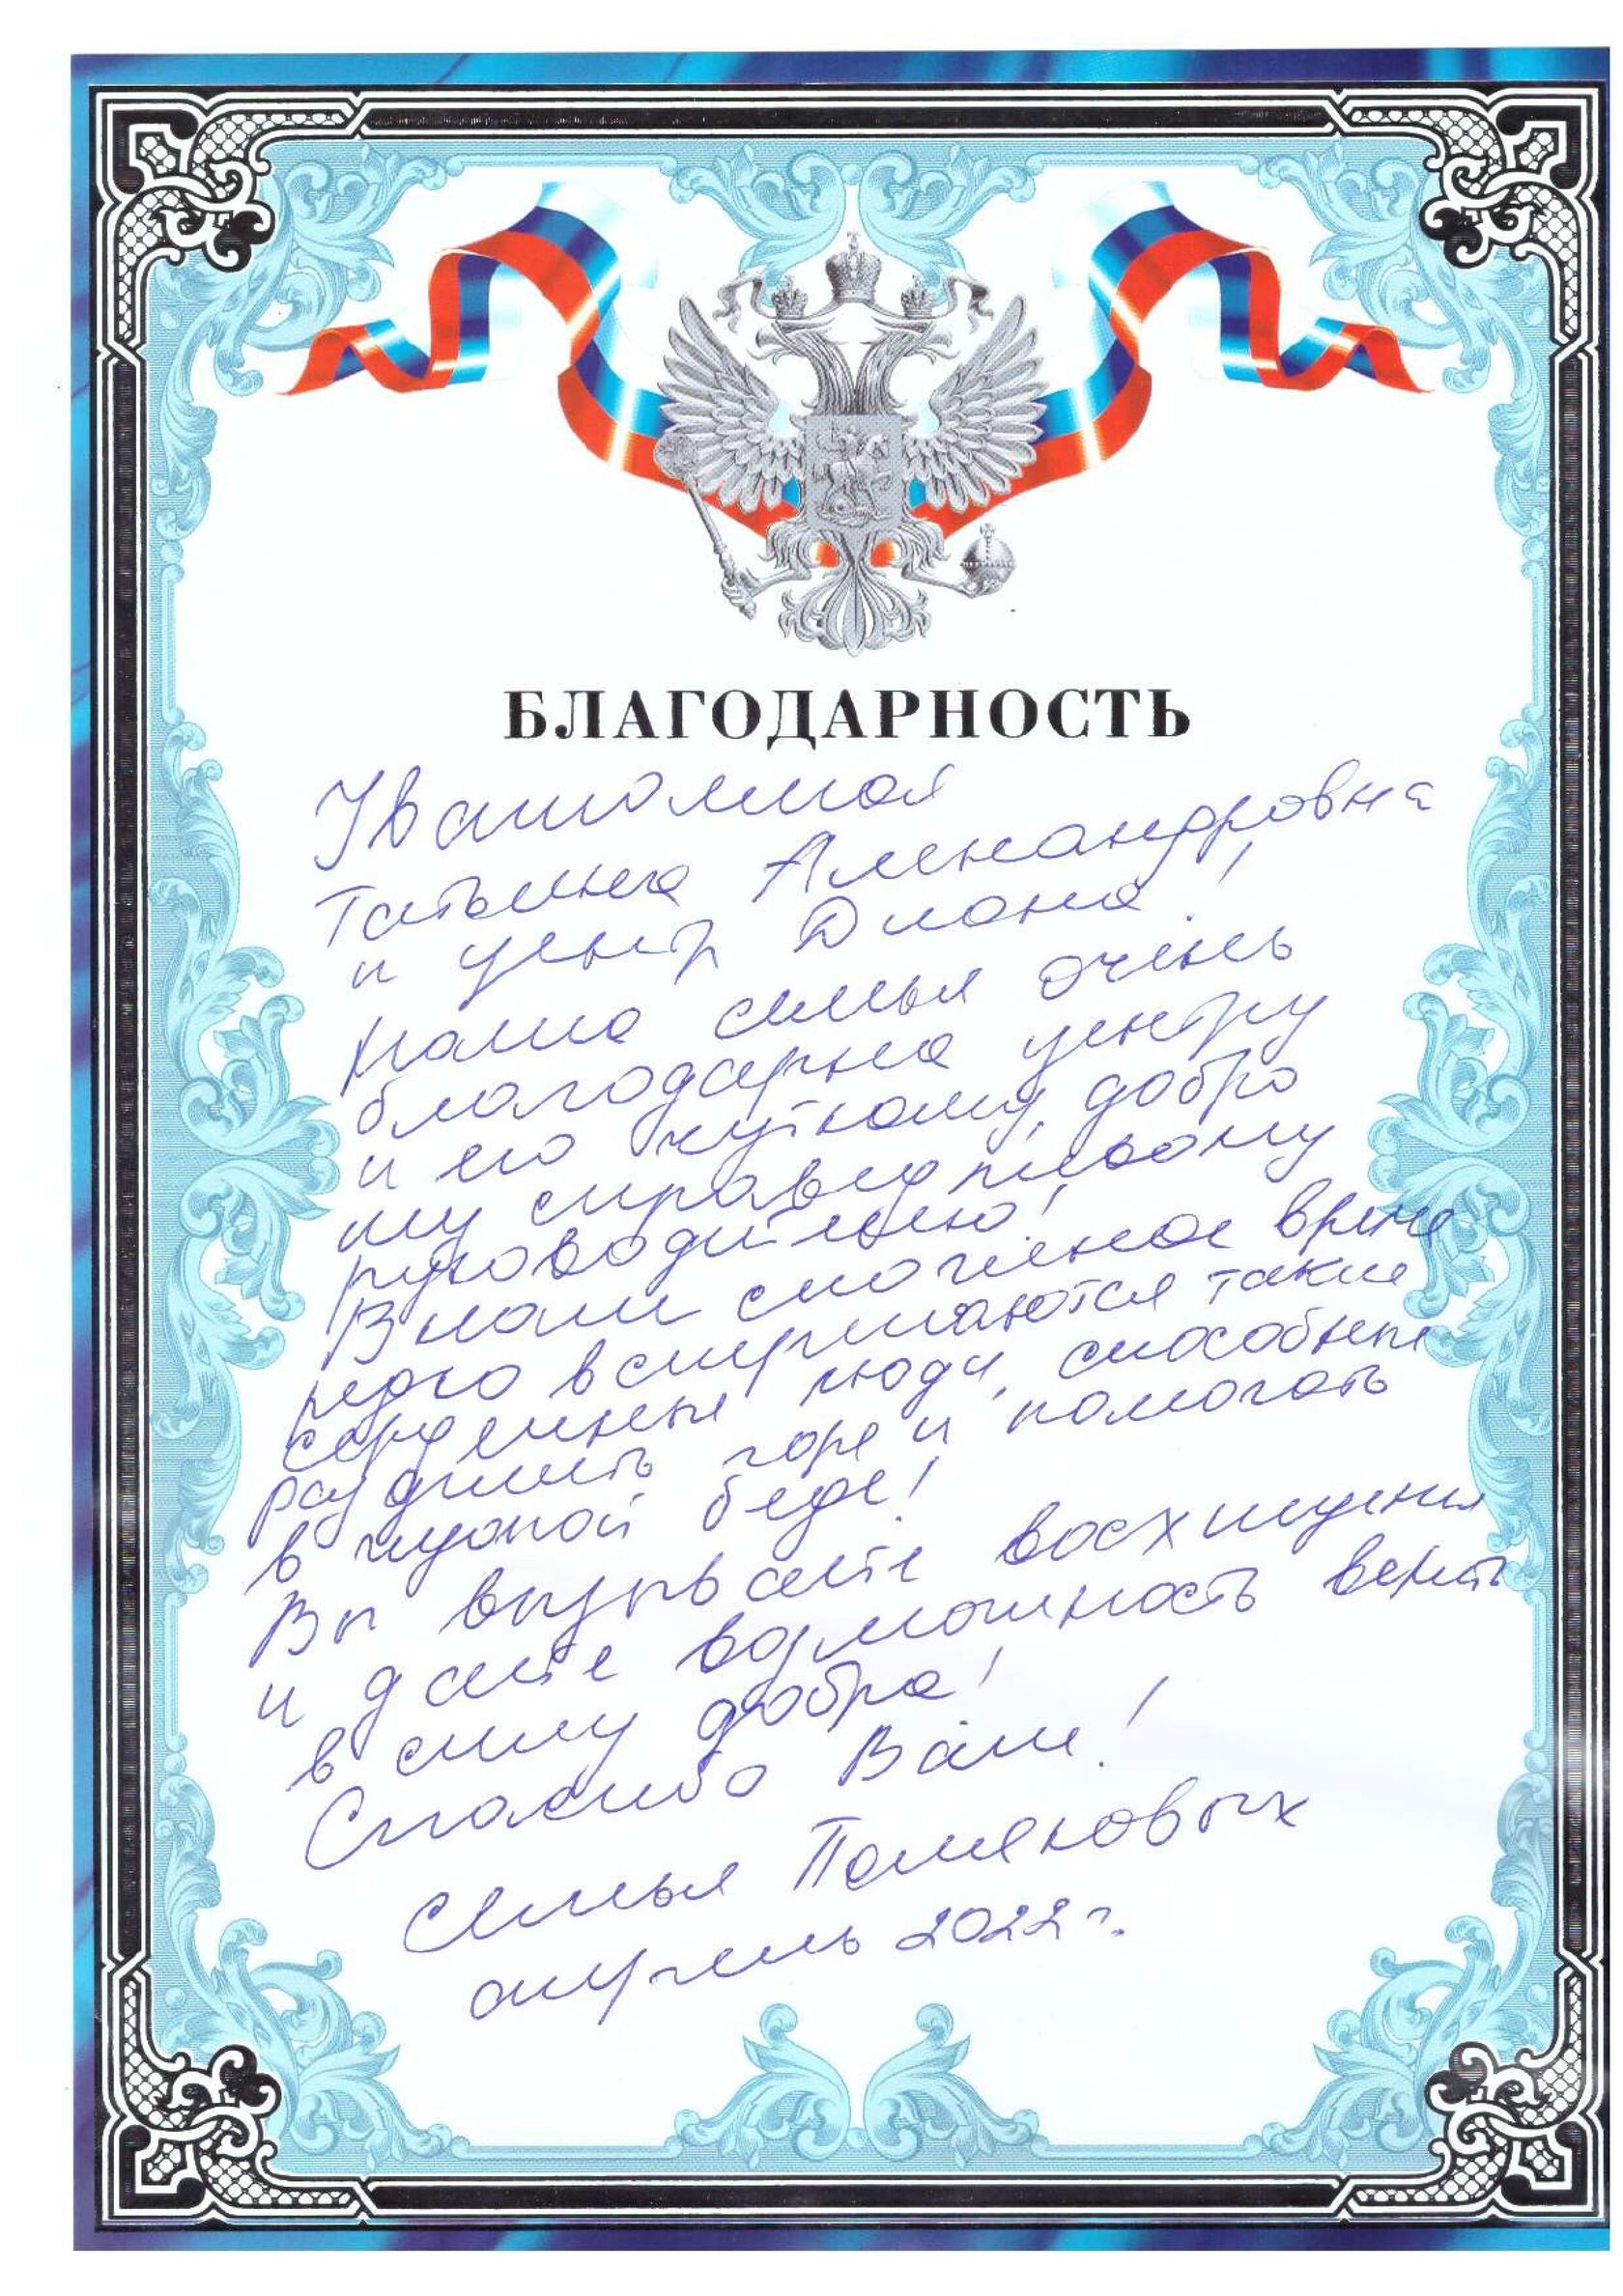 БЛАГОДАРНОСТЬ
Уважаемая
Татьяна Александровна
и центр Диана!
Наша семья очень
благодарна центру
и его чуткому, добро
му справедливому
руководителю!
В наше сложное время
редко встречаются такие
сердечные люди, способные
разделить горе и помогать
в чужой беде!
Вы вызываете восхищения
и даете возможность верить
в силу добра!
Спасибо Вам!
Семья Поляковых
апрель 2022 г.